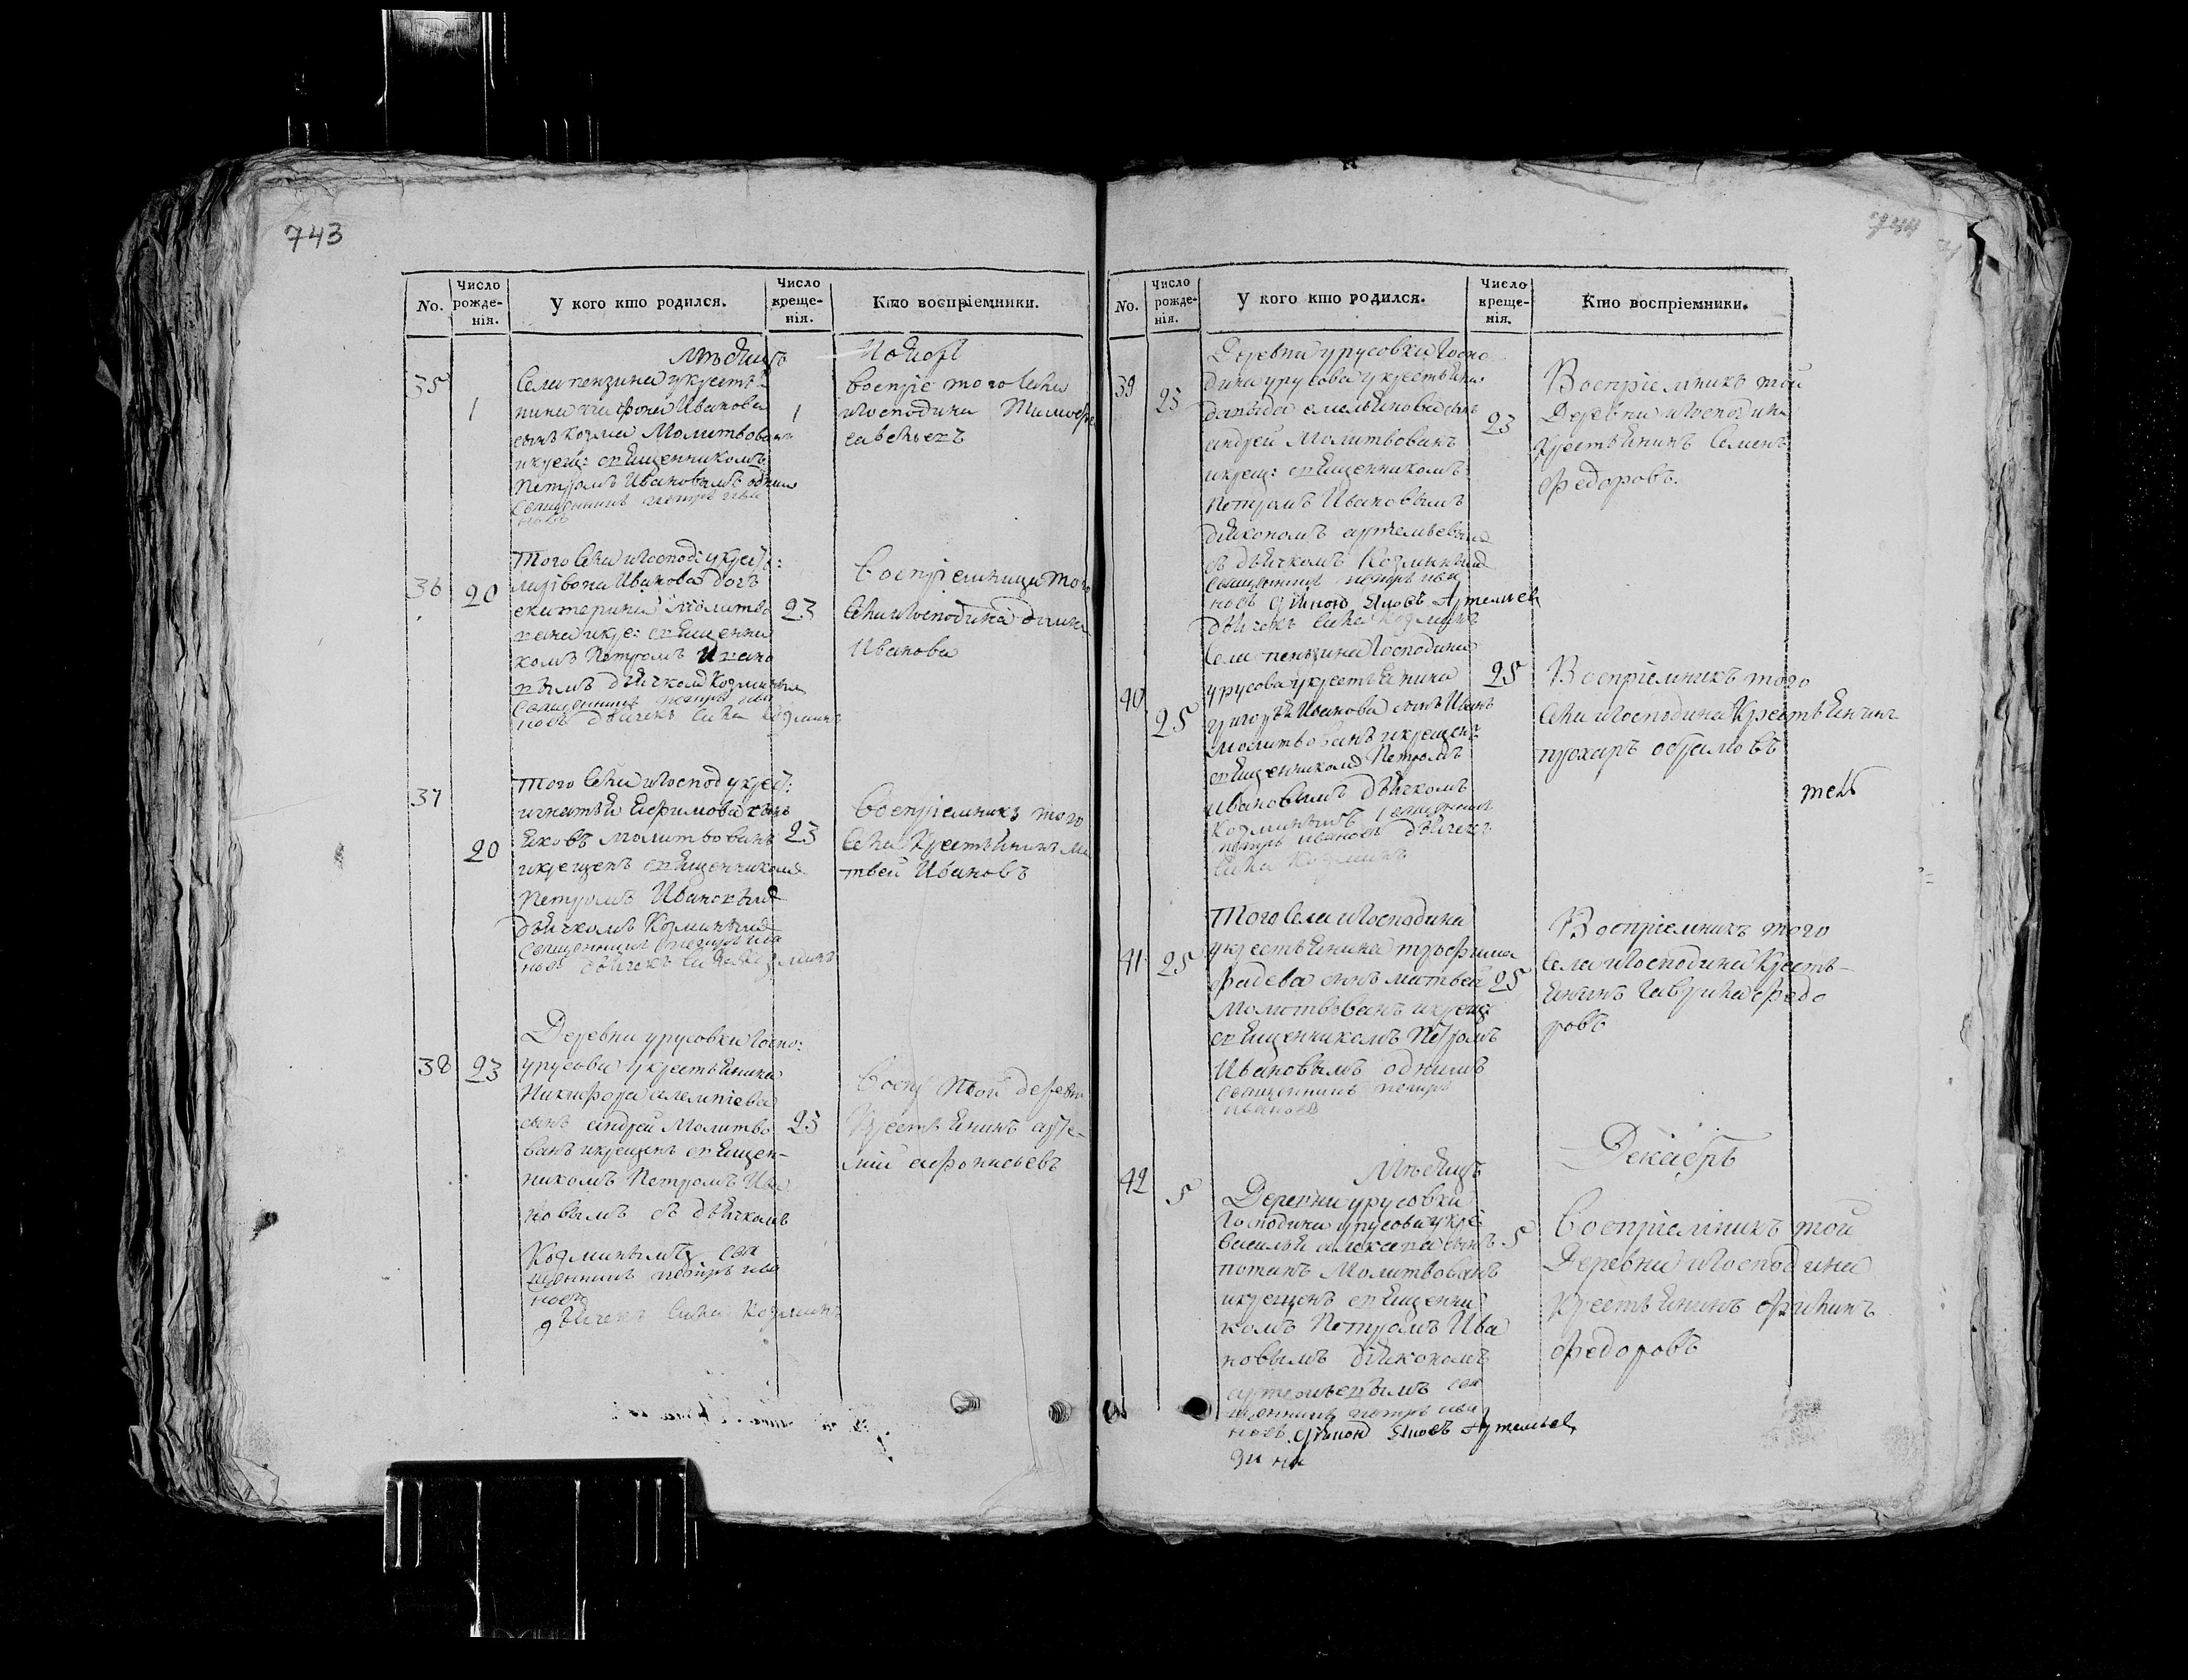 743
No.
Число рожде-нія.
У кого кто родился.
Число креще-нія.
Кто воспріемники.
Мѣсяцъ
35
1
Села пензина укрестья
нина Иванова
сынъ козма Молитвованъ
икрещ: священникомъ
Петромъ Ивановымъ однимъ
Священникъ петръ ива
новъ
1
воспріе того села
игосподина Тимофе
савельевъ
36
20
Того села игоспод: укрест:
Иванова дочь
екатерина молитво
вана икре: священни
комъ Петромъ Ивано
вымъ дьячкомъ Козминымъ
Священникъ петръ ива
новъ дьячекъ сила козминъ
23
Воспріемница того
села игосподина
Иванова
37
20
Того села игоспод укрест:
игнатья Ефимова сынъ
яковъ молитвованъ
икрещенъ священникомъ
Петромъ Ивановымъ
дьячкомъ Козминымъ
Священникъ петръ ива
новъ дьячекъ сила козминъ
23
Воспріемникъ того
села крестьянинъ ма
твей Ивановъ
38
23
Деревни урусовки госпо:
урусова укрестьянина
Никифора
сынъ андрей Молитво
ванъ икрещенъ священ-
никомъ Петромъ Ива
новымъ съ дьячкомъ
Козминымъ свя
щенникъ петръ ива
новъ
дьячекъ сила Козминъ
23
Воспр той деревни
Крестьянинъ
афонасьевъ
744
No.
Число рожде-нія.
У кого кто родился.
Число креще-нія.
Кто воспріемники.
39
23
Деревни урусовки Госпо
дина урусова укрестьянина
давыда емельянова сынъ
андрей Молитвованъ
икрещ: священникомъ
Петромъ Ивановымъ
діякономъ артемьевымъ
съ дьячкомъ Козминымъ
Священникъ петръ ива
новъ діяконъ Яковъ Артемьевъ
дьячекъ сила Козминъ
23
Воспріемникъ той
Деревни игосподина
Крестьянинъ Семенъ
Федоровъ.
40
25
Села пензина Господина
урусова укрестьянина
Иванова сынъ Иванъ
молитвованъ икрещенъ
священникомъ Петромъ
Ивановымъ дьячкомъ
Козминымъ священникъ
петръ ивановъ дьячекъ
сила Козминъ
25
Воспріемникъ того
села игосподина Крестьянинъ
41
25
Того Села игосподина
укрестьянина трофима
фадева сынъ матвей
Молитвованъ икреще
священникомъ Петромъ
Ивановымъ однимъ
священникъ петръ
ивановъ
25
Воспріемникъ того
Села игосподина Кресть-
янинъ Гаврила федо
ровъ
Мѣсяцъ
Декабрь
42
5
Деревни урусовки
Господина урусова укре
василья алексеева сынъ
потапъ Молитвованъ
икрещенъ священни
комъ Петромъ Ива
новымъ діякономъ
артемьевымъ свя
щенникъ петръ ива
новъ діяконъ Яковъ Артемьевъ
5
Воспріемникъ той
Деревни игосподина
Крестьянинъ
федоровъ